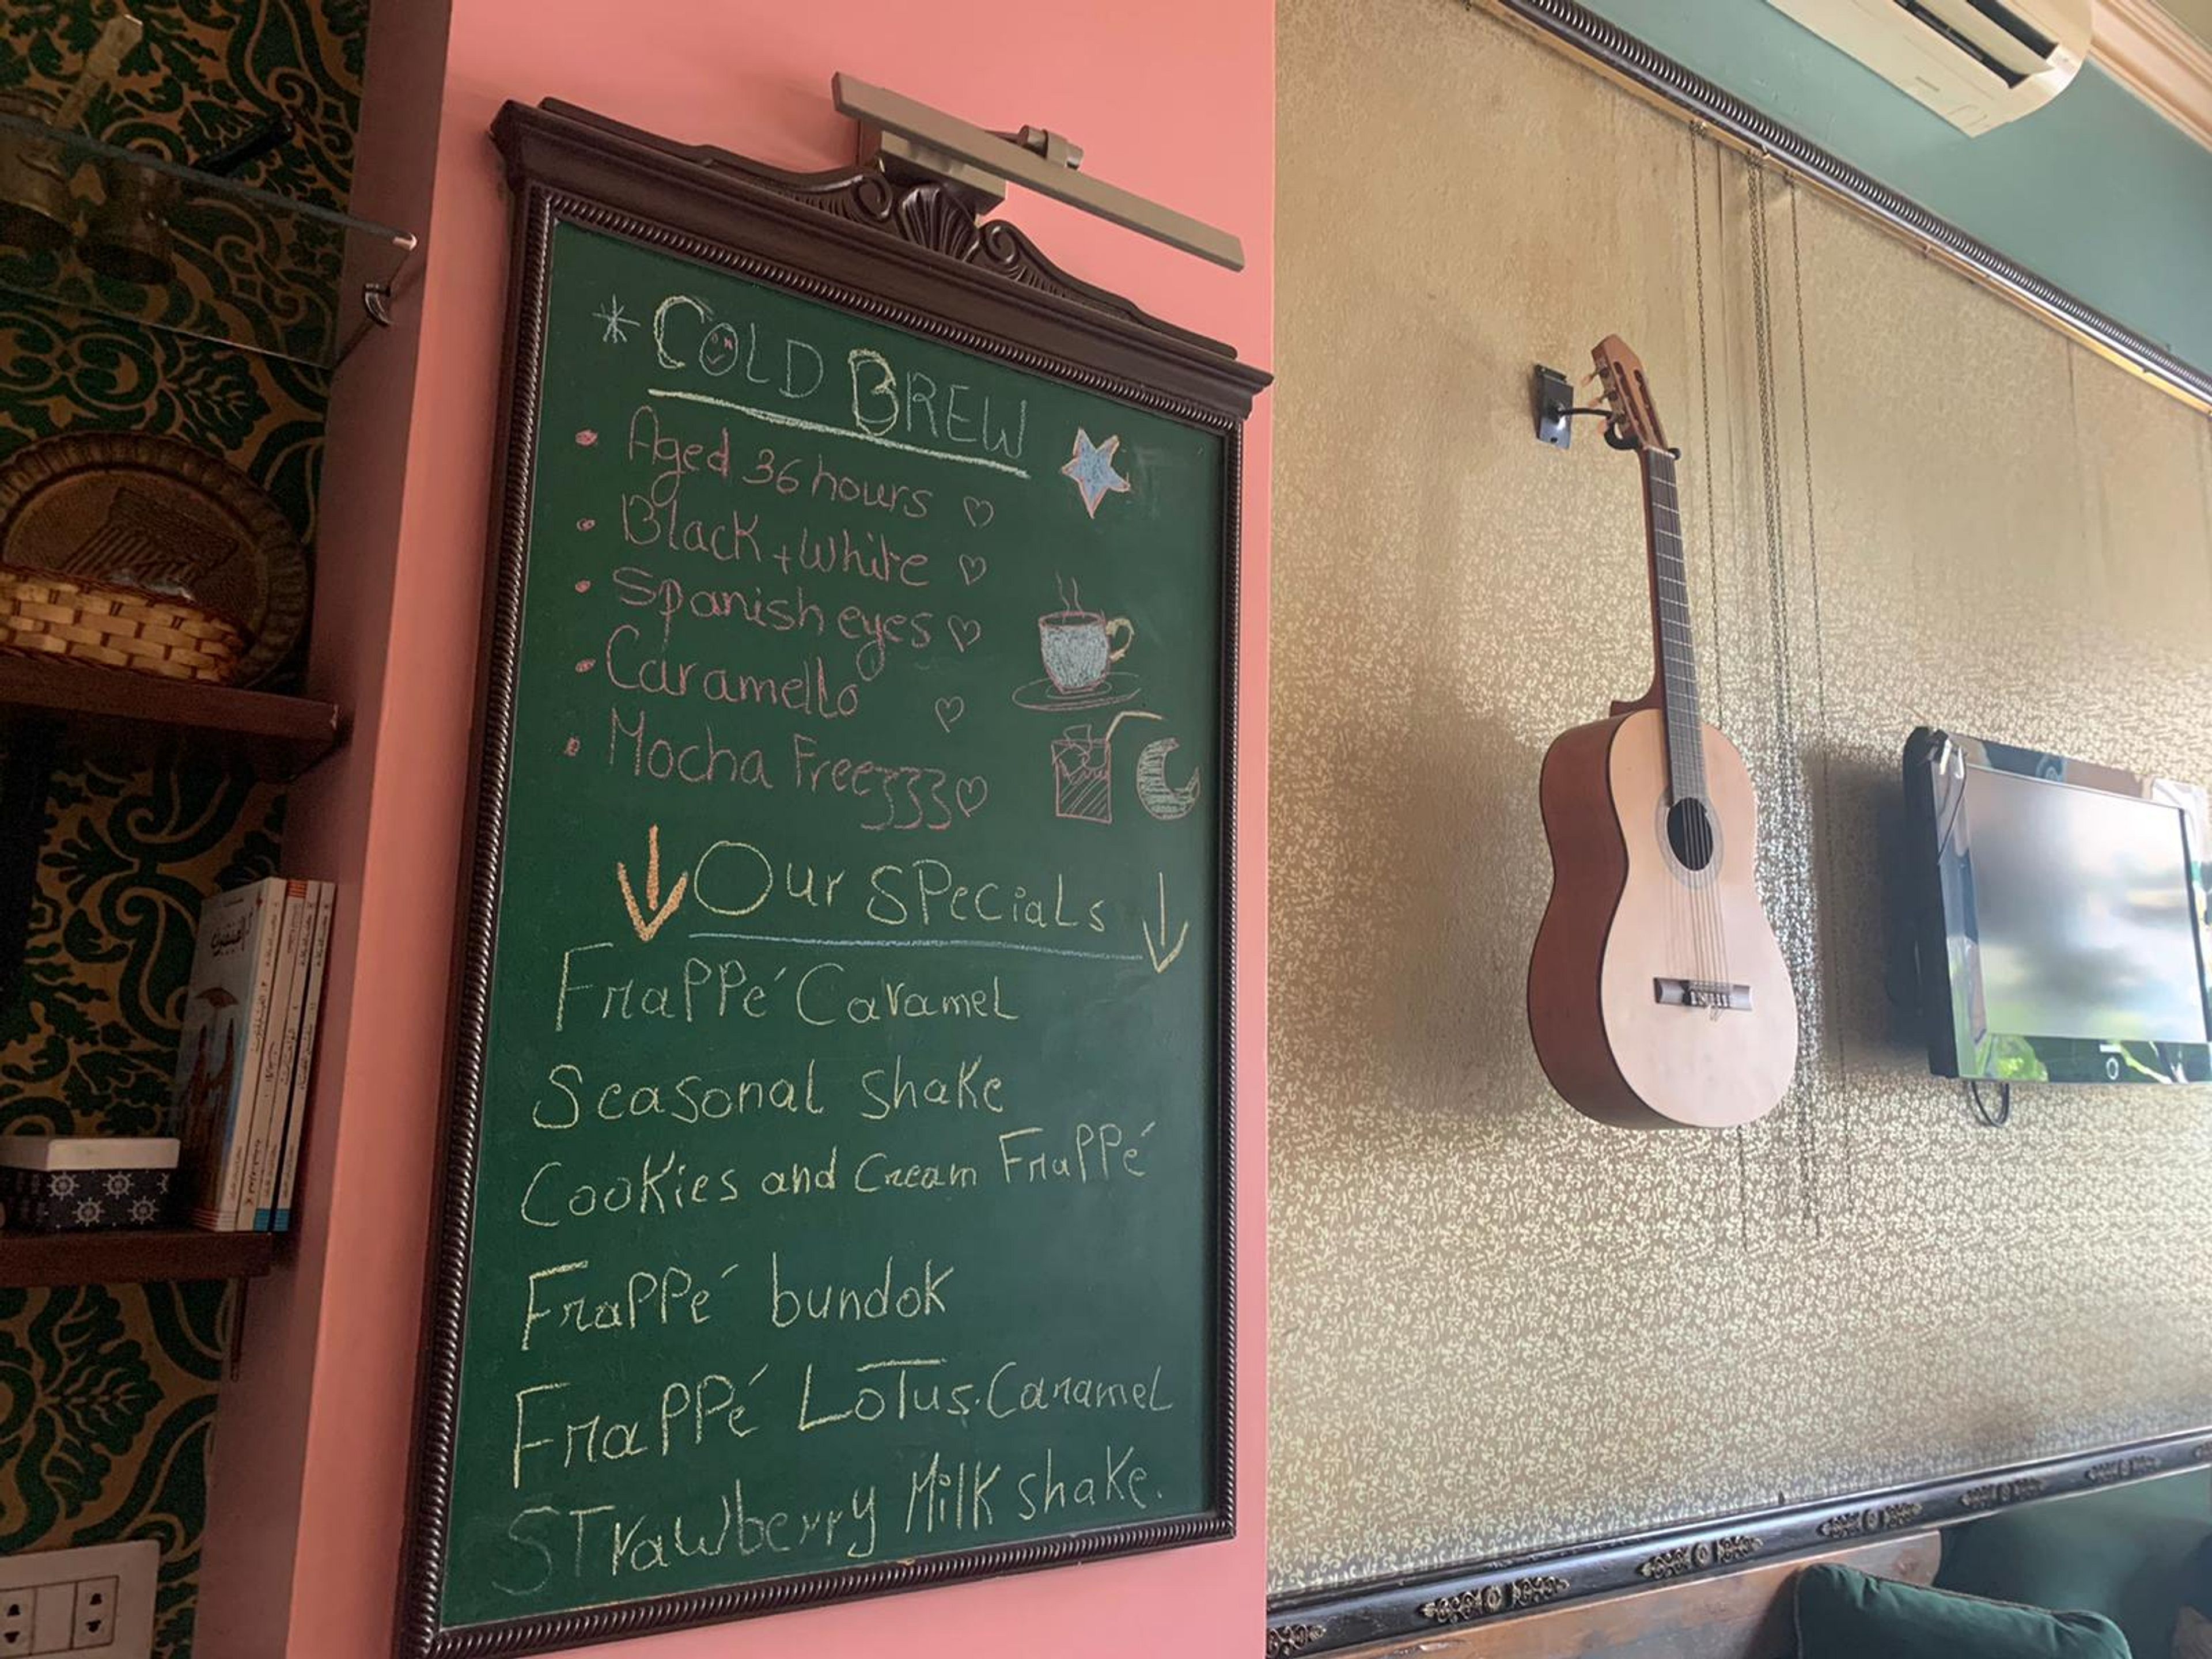 * COLD BREW
• Aged 36 hours ♡
• Black + white ♡
• Spanish eyes ♡
• Caramello ♡
• Mocha Freezzzz ♡
Our SPeciaLs
FraPPé Caramel
Seasonal shake
Cookies and Cream FraPPé
FraPPé bundok
FraPPé LoTus. Caramel
STrawberry Milk shake.